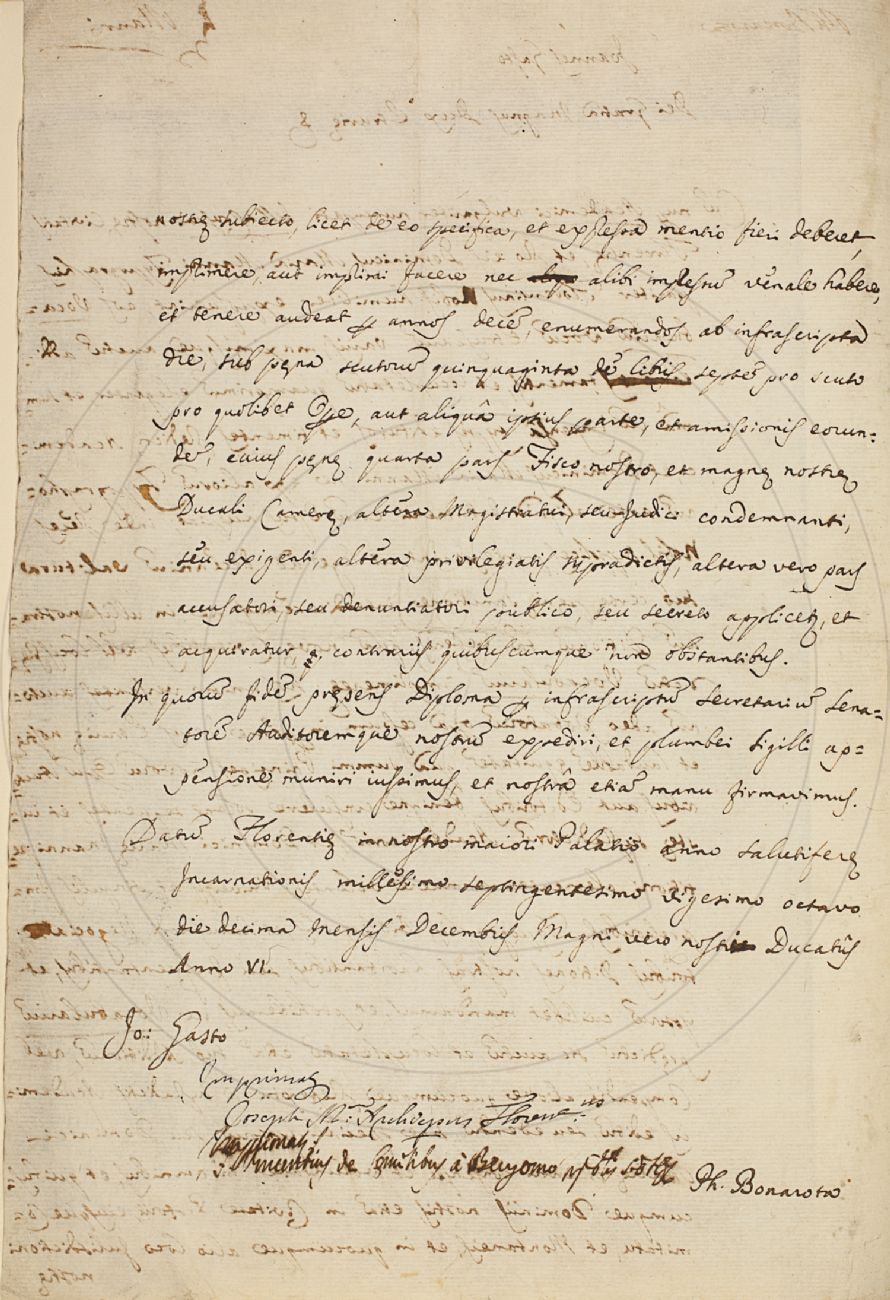 nostrę subiecto, licet de eo specifica, et expressa mentio fieri deberet,
imprimere, aut imprimi facere nec alibi impressũ venale habere,
et tenere audeat ꝑ annos decẽ, enumerandos ab infrascripta
die, sub pęna scutorũ quinquaginta de libris septẽ pro scuto
pro quolibet Ope, aut aliquâ ipsius parte, et amissionis eorun=
dẽ, cuius pęnę quarta pars Fisco nostro, et magnę nostrę
Ducali Camerę, altera Magistratui, seu Judici condemnanti,
seu exigenti, altera privilegiatis supradictis, altera vero pars
accusatori, seu denuntiatori publico, seu secreto applicetʳ, et
acquiratur, contrariis quibuscumque non obstantibus.
In quorũ fidẽ pręsens Diploma ꝑ infrascriptũ Secretariũ Sena=
torẽ Auditoremque nostrũ expediri, et plumbei sigilli ap=
pensione muniri iussimus, et nostrâ etiã manu firmavimus.
Datũ Florentię in nostro maiori Palatio anno salutiferę
Incarnationis millesimo septingentesimo vigesimo octavo
die decima Mensis Decembris Magni vero nostri Ducatûs
Anno VI.
Jo: Gasto
Imprimatʳ
Joseph Mᵃ Archiepus Florent.ⁿᵘˢ
Imprimatʳ
de Comitibus a Bergomo
Ph. Bonarota